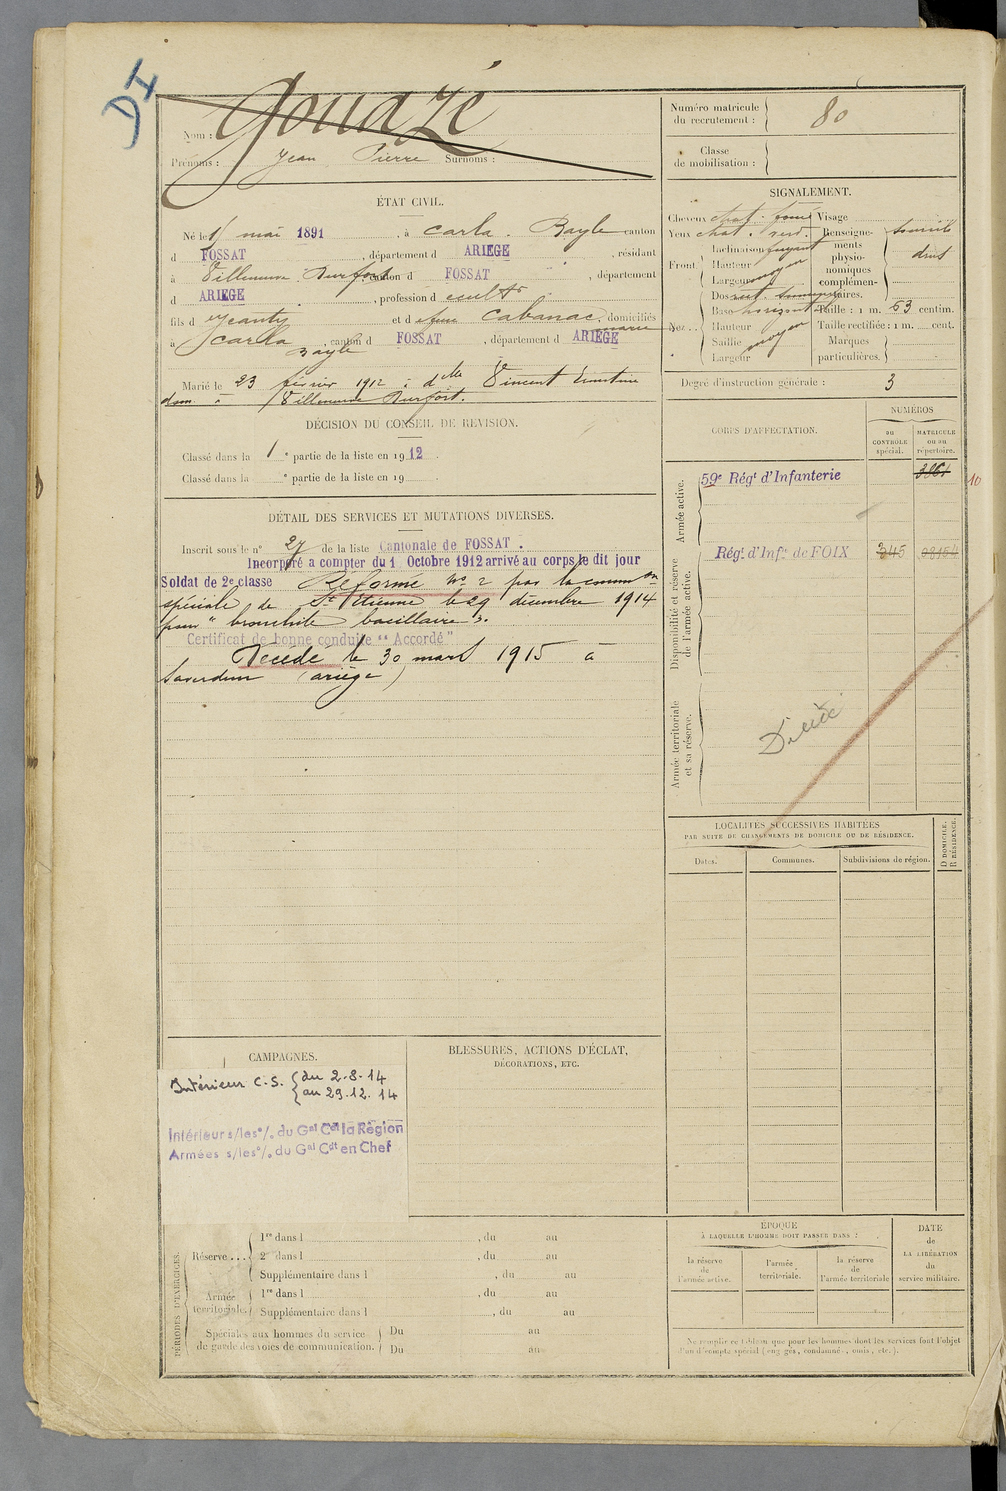 DI
Nom : Gouazé
Prénoms : Jean Pierre Surnoms :
Numéro matricule
du recrutement : 80
Classe
de mobilisation :
ÉTAT CIVIL.
Né le 1 mai 1891, à Carla. Bayle canton
d FOSSAT, département d ARIEGE, résidant
à Villeneuve Durfort canton d FOSSAT, département
d ARIEGE, profession d cultr
fils d Jeanty et d Cabanac, domiciliés
à Carla Bayle, canton d FOSSAT, département d ARIEGE
Marié le 23 février 1912 à dlle Vincent Ernestine
dom. à Villeneuve Durfort.
DÉCISION DU CONSEIL DE RÉVISION.
Classé dans la 1 e partie de la liste en 1912.
Classé dans la e partie de la liste en 19
DÉTAIL DES SERVICES ET MUTATIONS DIVERSES.
Inscrit sous le n° 27 de la liste Cantonale de FOSSAT.
Incorporé à compter du 1 Octobre 1912 arrivé au corps le dit jour
Soldat de 2e classe Réformé n° 2 par la commson
spéciale de St Etienne le 29 décembre 1914
pour "bronchite bacillaire".
Certificat de bonne conduite "Accordé"
Décédé le 30 mars 1915 à
Saverdun (ariège)
SIGNALEMENT.
Cheveux chat. foncé Visage
Yeux chat. Renseigne-
ments
physio-
nomiques
complémen-
taires.
Front Inclinaison fuyant
Hauteur moyen
Largeur
Nez Dos
Base horizontal
Hauteur moyen
Saillie
Largeur
Taille : 1 m. 63 centim.
Taille rectifiée : 1 m. cent.
Marques
particulières.
Degré d'instruction générale : 3
CORPS D'AFFECTATION.
NUMÉROS
au
CONTRÔLE
spécial.
MATRICULE
ou au
répertoire.
Armée active.
59e Régt d'Infanterie
10
Disponibilité et réserve
de l'armée active.
Régt d'Infie de FOIX
Armée territoriale
et sa réserve.
LOCALITÉS SUCCESSIVES HABITÉES
PAR SUITE DE CHANGEMENTS DE DOMICILE OU DE RÉSIDENCE.
Dates.
Communes.
Subdivisions de région.
D DOMICILE.
R RÉSIDENCE.
CAMPAGNES.
Intérieur C.S. du 2-8-14
au 29.12.14
Intérieur s/les °/. du Gal Cdt la Région
Armées s/les °/. du Gal Cdt en Chef
BLESSURES, ACTIONS D'ÉCLAT,
DÉCORATIONS, ETC.
PÉRIODES D'EXERCICES.
Réserve ... 1re dans l , du au
2e dans l , du au
Supplémentaire dans l , du au
Armée
territoriale. 1re dans l , du au
Supplémentaire dans l , du au
Spéciales aux hommes du service
de garde des voies de communication.
Du au
Du au
ÉPOQUE
À LAQUELLE L'HOMME DOIT PASSER DANS :
la réserve
de
l'armée active.
l'armée
territoriale.
la réserve
de
l'armée territoriale
DATE
de
LA LIBÉRATION
du
service militaire.
Ne remplir ce tableau que pour les hommes dont les services font l'objet
d'un décompte spécial (engagés, condamnés, omis, etc.).